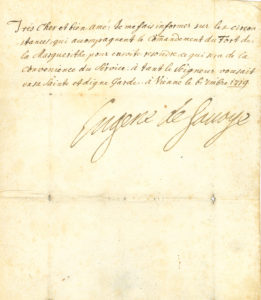 Tres Cher et bien amé: Je me fais informer sur les circon
stances, qui accompagnent le Commandement du Fort de
la Marguerithe pour ensuite resoudre ce qui sera de la
Convenience du Service: à tant le Seigneur vous ait
en sa Sainte et digne Garde. à Vienne le 1719
Eugene de Savoye